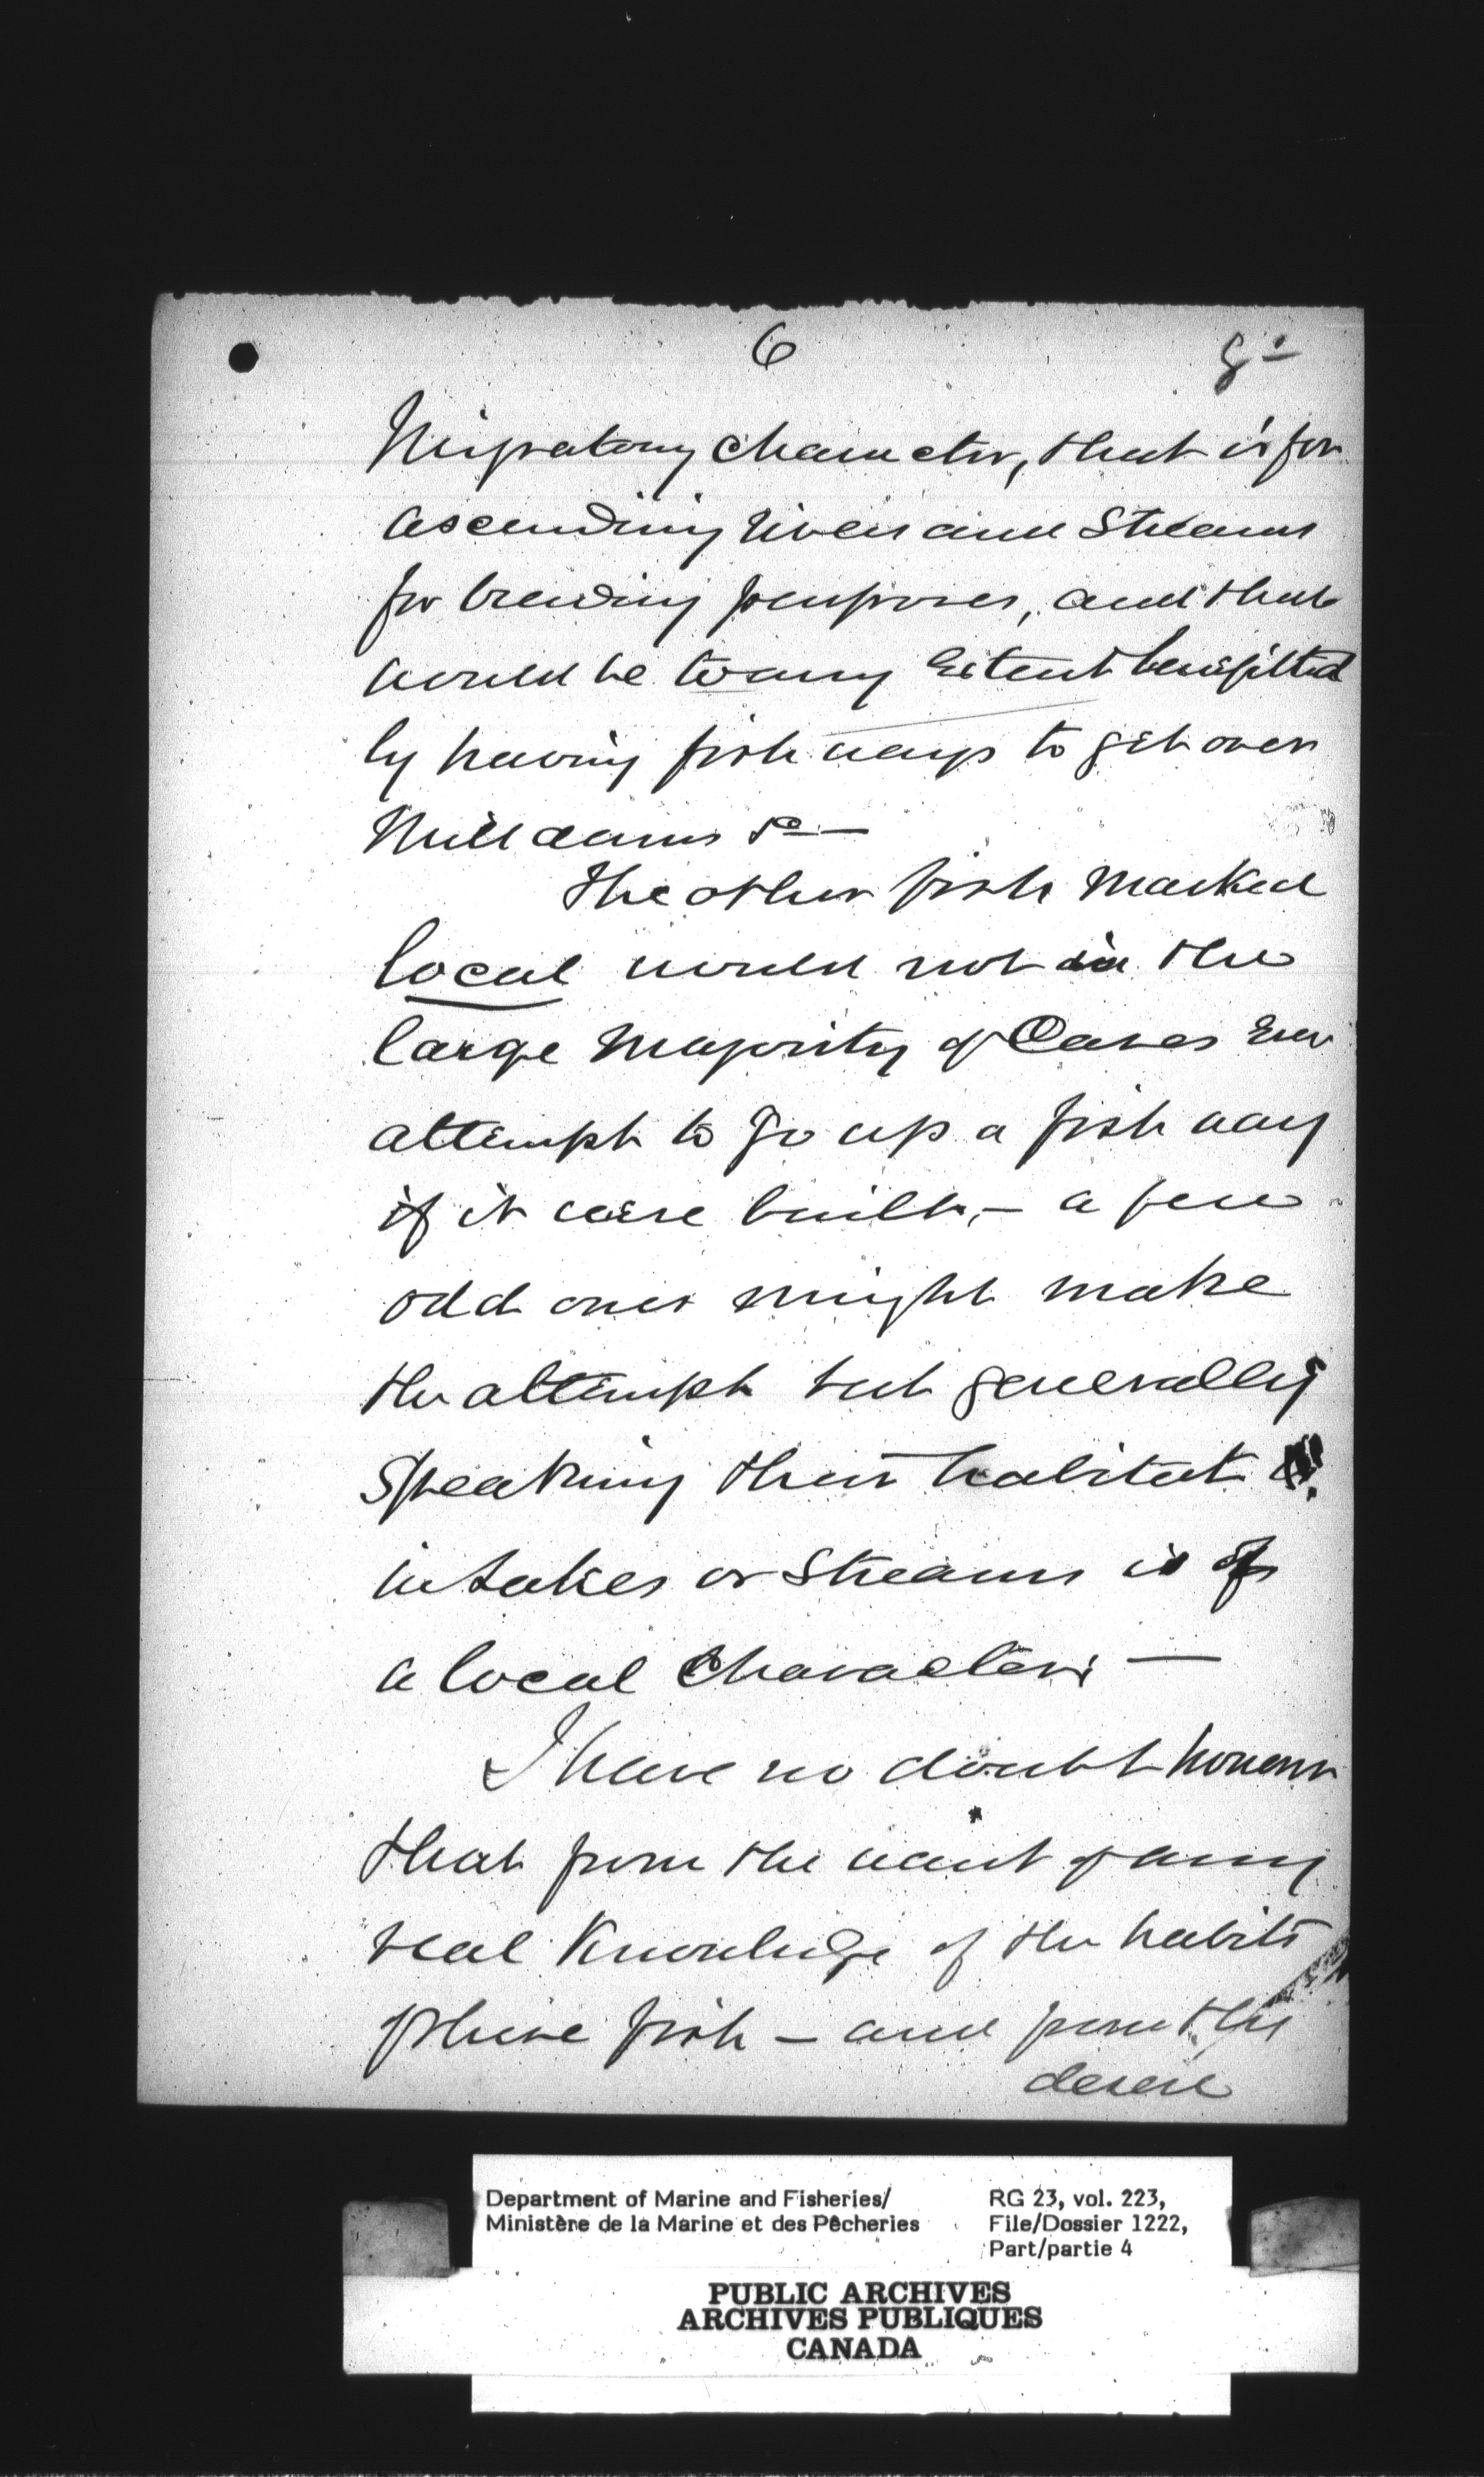 6
Migratory character, that is for
ascending rivers and Streams
for breeding purposes, and that
would be to any Extent benefitted
by having fish ways to get over
Mill dams &c —
The other fish Marked
local would not in the
large Majority of Cases Even
attempt to go up a fish way
if it were built, — a few
odd ones might make
the attempt but generally
Speaking their habitat
in Lakes or Streams is of
a local Character. —
I have no doubt however
that from the want of any
real Knowledge of the habits
of these fish — and from the
desire
Department of Marine and Fisheries/
Ministère de la Marine et des Pêcheries
RG 23, vol. 223,
File/Dossier 1222,
Part/partie 4
PUBLIC ARCHIVES
ARCHIVES PUBLIQUES
CANADA